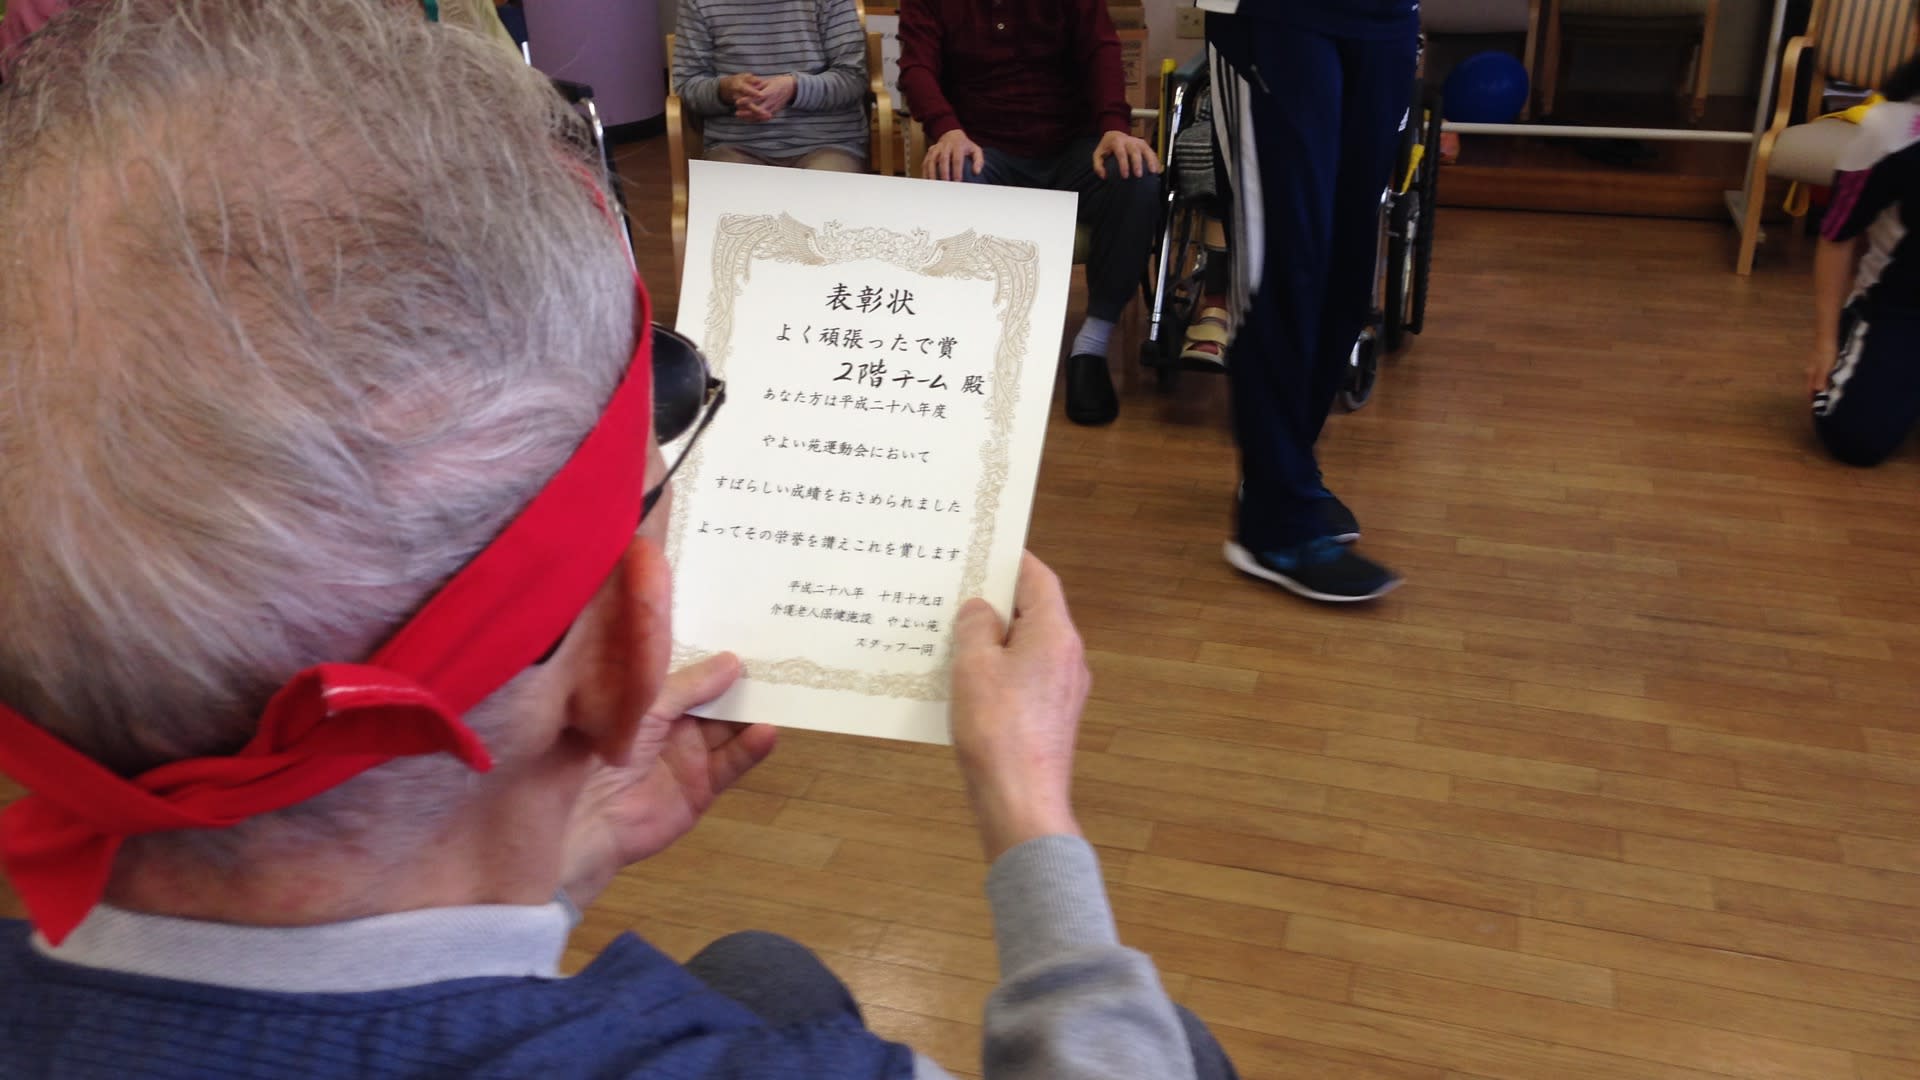 表彰状
よく頑張ったで賞
2階チーム 殿
あなた方は平成二十八年度
やよい苑運動会において
すばらしい成績をおさめられました
よってその栄誉を讃えこれを賞します
平成二十八年 十月十九日
介護老人保健施設 やよい苑
スタッフ一同